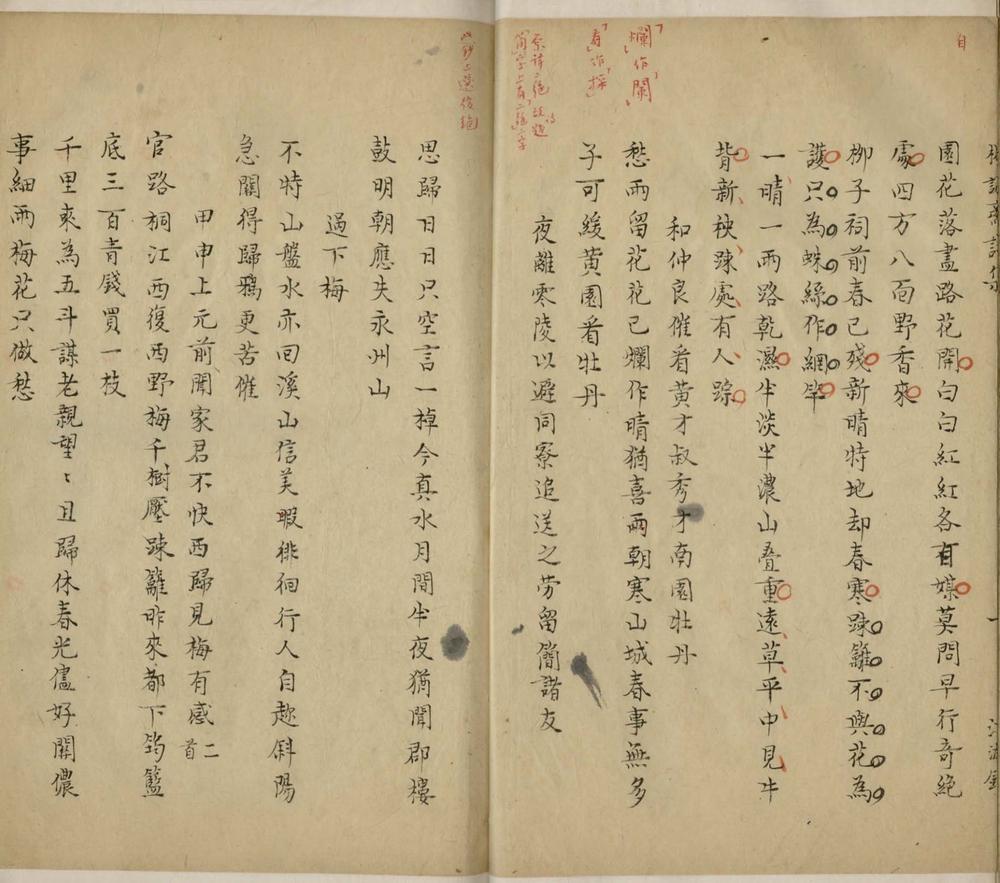 自
園花落盡路花開白白紅紅各自媒莫問早行奇絶
處四方八面野香來
柳子祠前春已殘新晴特地却春寒踈籬不與花為
護只為蛛絲作網竿
一晴一雨路乾濕半淡半濃山叠重遠草平中見牛
背新秧踈處有人踪
和仲良催看黄才叔秀才南園牡丹
愁雨留花花已爛作晴猶喜兩朝寒山城春事無多
子可緩黄園看牡丹
夜離零陵以避同寮追送之劳留簡諸友
爛作闌
看作探
思歸日日只空言一掉今真水月間半夜猶聞郡樓
鼓明朝應失永州山
過下梅
不特山盤水亦回溪山信美暇徘徊行人自趂斜陽
急關得歸鴉更苦催
甲申上元前聞家君不快西歸見梅有感二首
官路桐江西復西野梅千樹壓踈籬昨來都下筠籃
底三百青錢買一枝
千里來為五斗謀老親望〻且歸休春光儘好關儂
事細雨梅花只做愁